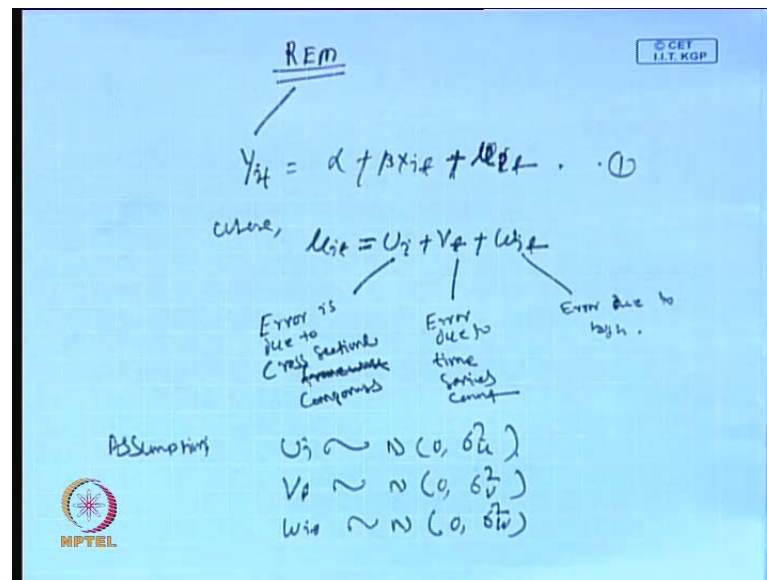 REM
© CET
I.I.T. KGP
Yit = α + βxit + uit . . ①
where, uit = Ui + Vt + wit
Error is due to Cross Sectional Components
Error due to time Series
Error due to both.
Assumption Ui ~ N (0, σ²u)
Vt ~ N (0, σ²v)
wit ~ N (0, σ²w)
NPTEL